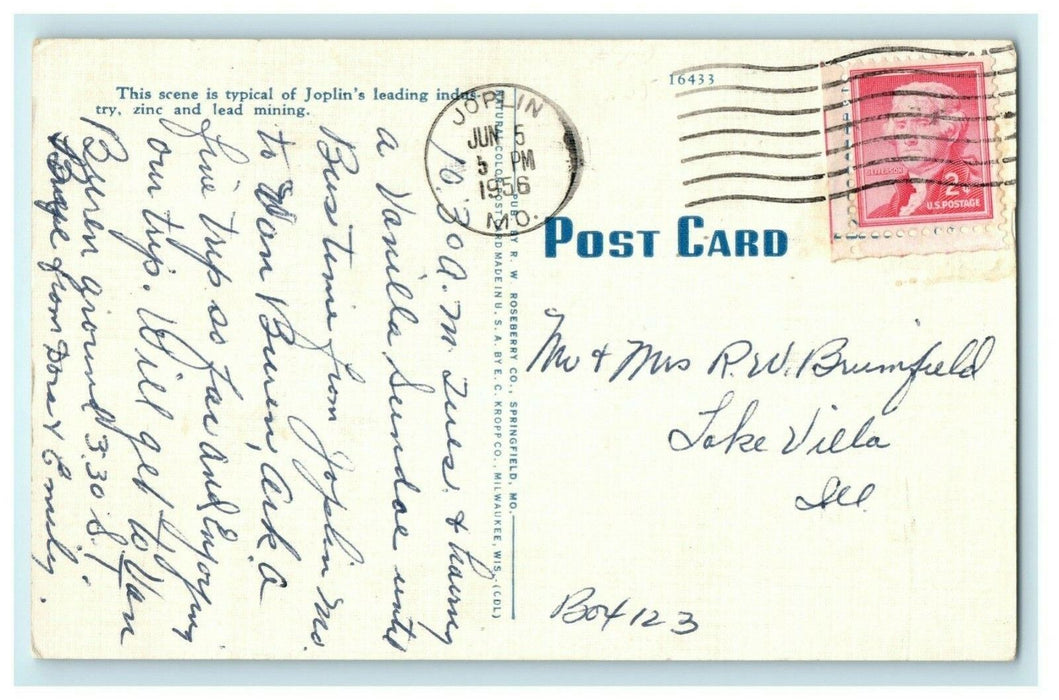 This scene is typical of Joplin's leading indus-
try, zinc and lead mining.
16433
JOPLIN
JUN 5
5 PM
1956
MO.
JEFFERSON
2¢
U.S. POSTAGE
POST CARD
PUB. BY R. W. ROSEBERRY CO., SPRINGFIELD, MO.
NATURAL COLOR POST CARD MADE IN U. S. A. BY E. C. KROPP CO., MILWAUKEE, WIS. (CDL)
10.30 A.M. Tues. & having
a Vanilla Sundae until
Bus time from Joplin Mo
to Van Buren, Ark. a
fine trip so far and Enjoying
our trip. Will get to Van
Buren around 3.30
from Dora & Emily.
Mr & Mrs R.W. Brumfield
Lake Villa
Ill.
Box 123